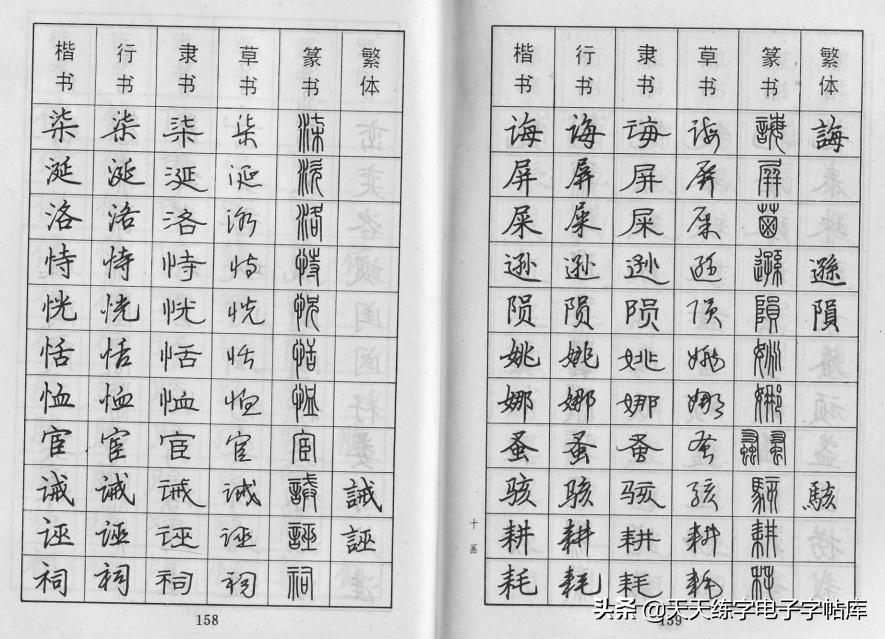 楷书 行书 隶书 草书 篆书 繁体
柒 柒 柒 柒 柒
涎 涎 涎 涎 涎
洛 洛 洛 洛 洛
恃 恃 恃 恃 恃
恍 恍 恍 恍 恍
恬 恬 恬 恬 恬
恤 恤 恤 恤 恤
宦 宦 宦 宦 宦
诫 诫 诫 诫 誡 誡
诬 诬 诬 诬 誣 誣
祠 祠 祠 祠 祠
158
楷书 行书 隶书 草书 篆书 繁体
诲 诲 诲 诲 誨 誨
屏 屏 屏 屏 屏
屎 屎 屎 屎
逊 逊 逊 逊 遜 遜
陨 陨 陨 陨 隕 隕
姚 姚 姚 姚 姚
娜 娜 娜 娜 娜
蚤 蚤 蚤 蚤
骇 骇 骇 骇 駭 駭
耕 耕 耕 耕 耕
耗 耗 耗 耗 耗
十画
159
头条 @天天练字电子字帖库